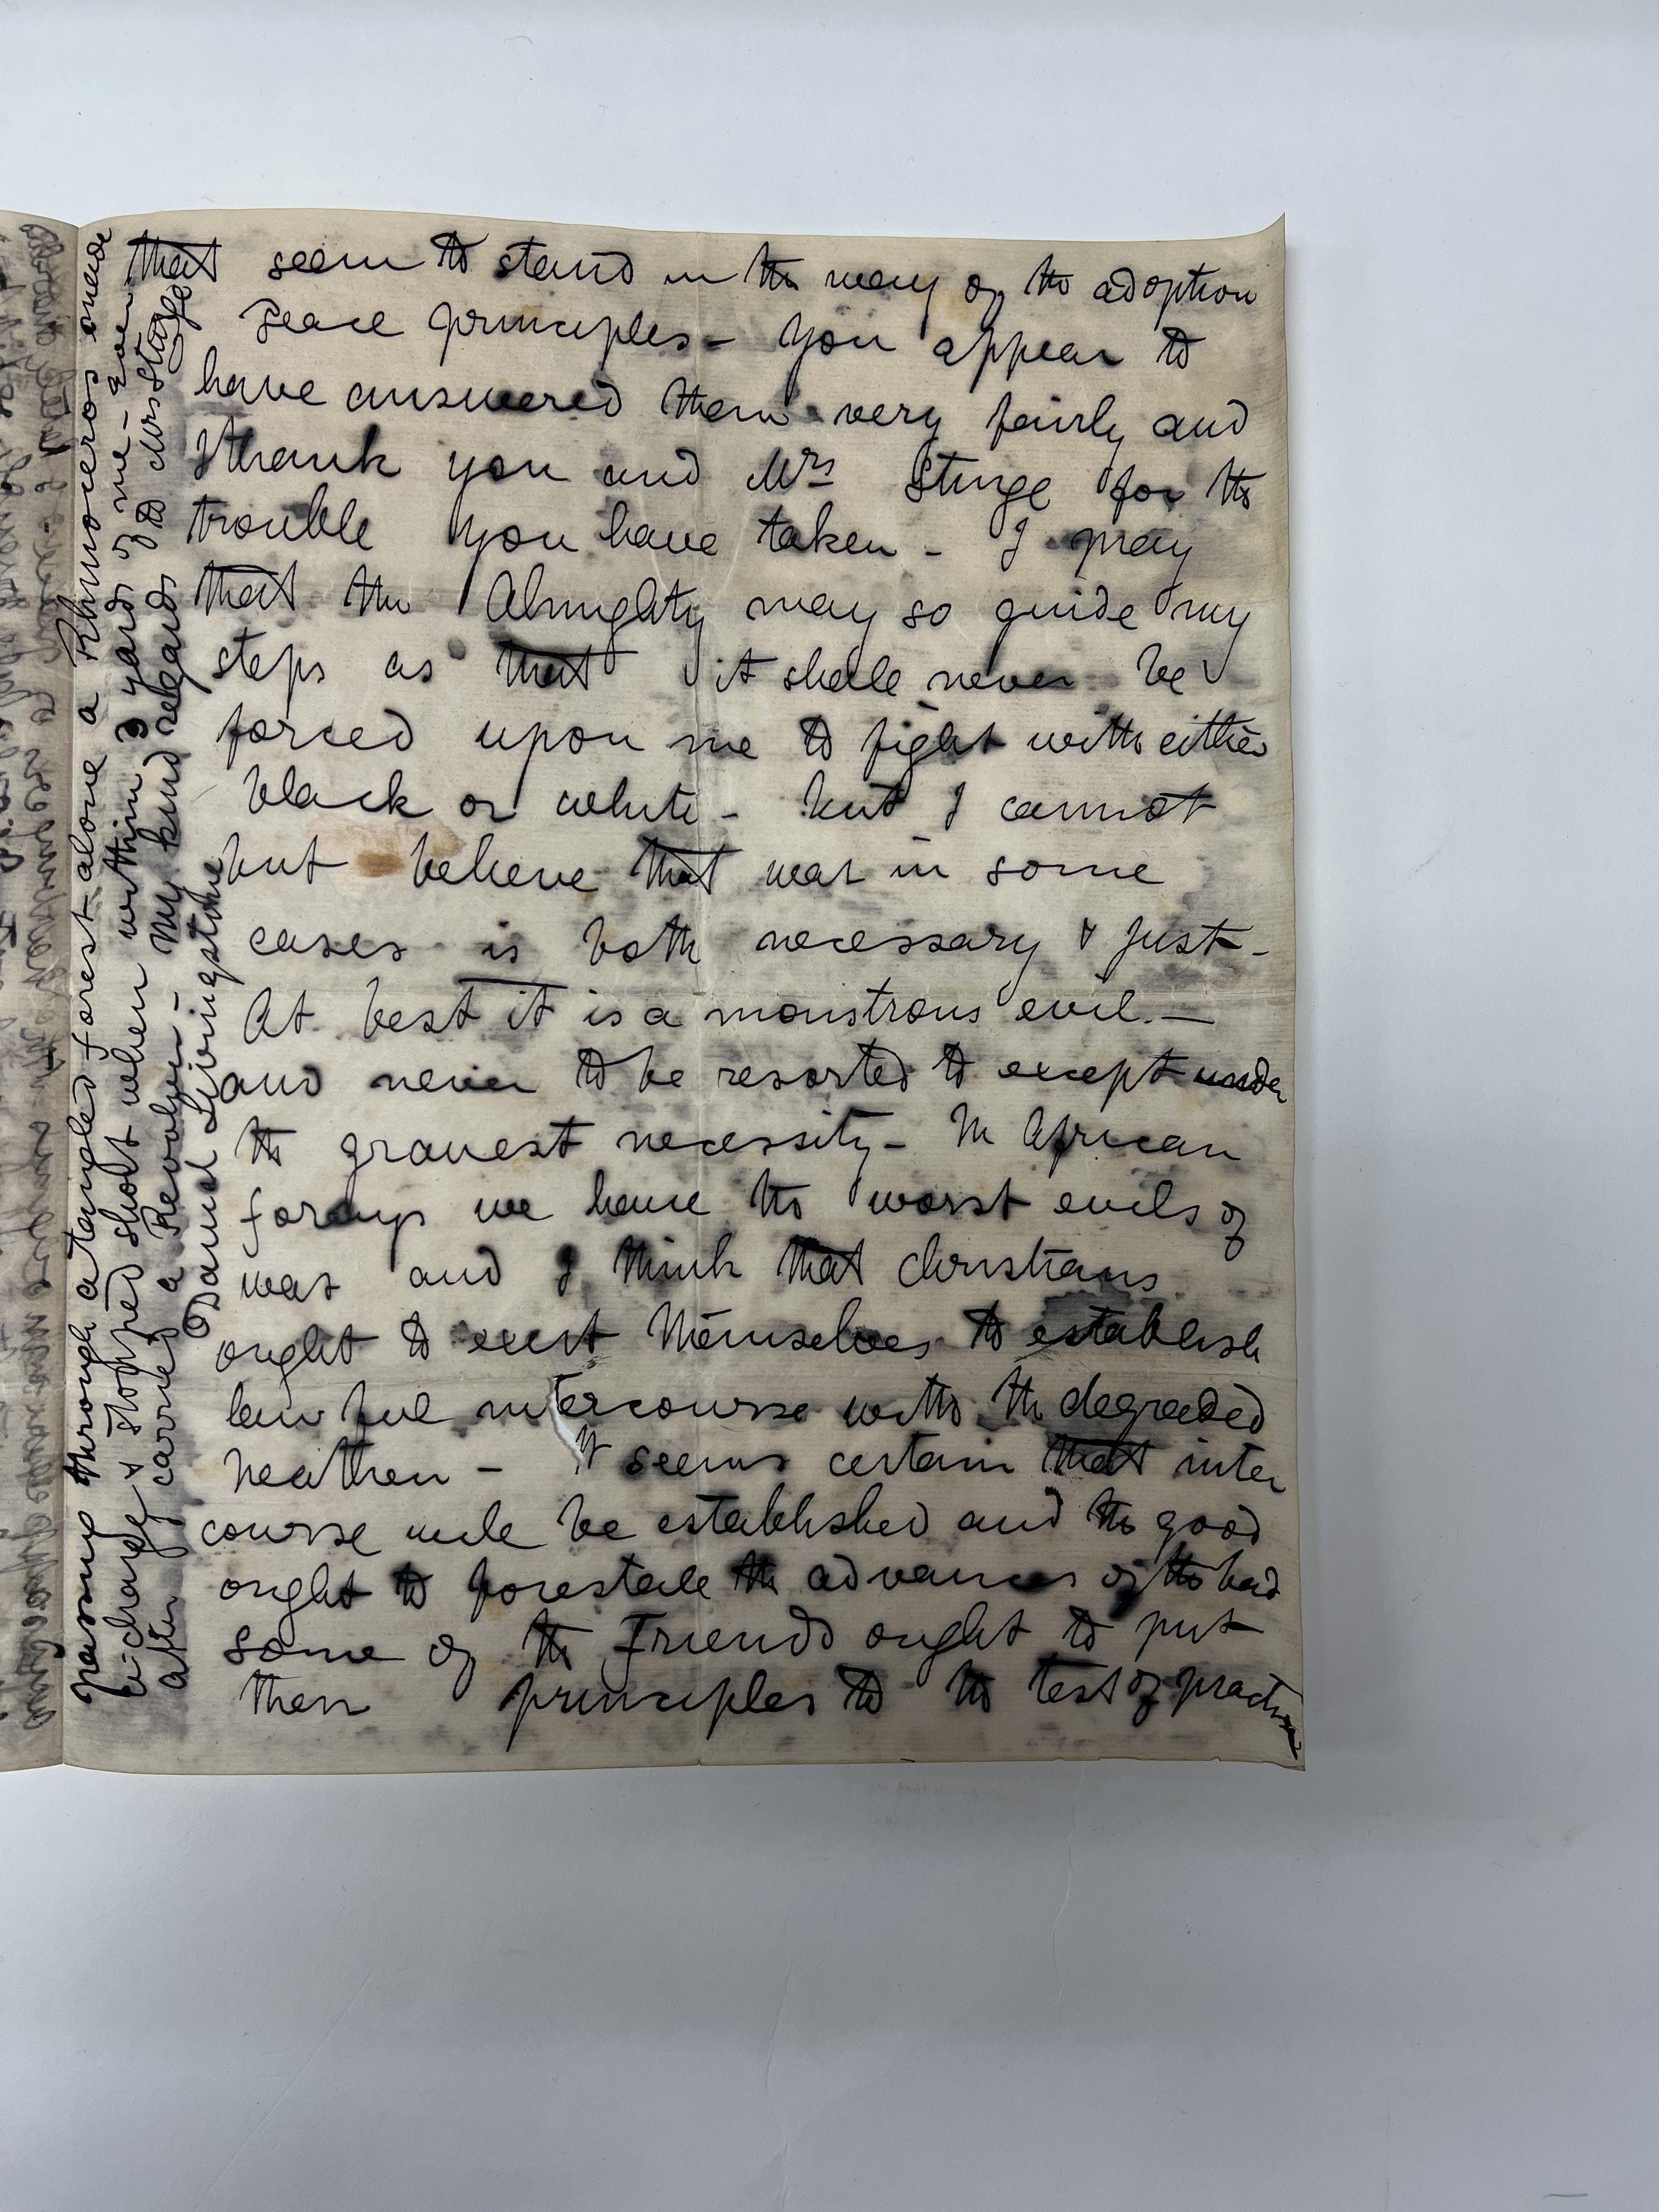 that seem to stand in the way of the adoption
Peace principles - you appear to
have answered them very fairly and
I thank you and Mrs Sturge for the
trouble you have taken - I pray
that the Almighty may so guide my
steps as that it shall never be
forced upon me to fight with either
black or white - but I cannot
but believe that war in some
cases is both necessary & just -
At best it is a monstrous evil. —
and never to be resorted to except under
the gravest necessity - In African
forays we have the worst evils of
war and I think that christians
ought to exert themselves to establish
lawful intercourse with the degraded
heathen - It seems certain that inter
course will be established and the good
ought to forestall the advances of the bad
some of the Friends ought to put
their principles to the test of practice
passing through a tangled forest alone a Rhinoceros made
a charge & stopped short when within 3 yards of me - ever
after carried a Revolver - My kind regards to Mrs Sturge
David Livingstone